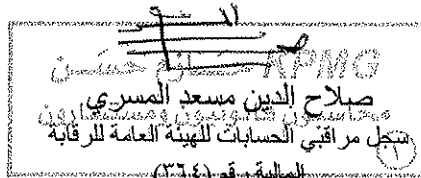 KPMG حازم حسن
صلاح الدين مسعد المسري
محاسبون قانونيون ومستشارون
سجل مراقبي الحسابات للهيئة العامة للرقابة
المالية رقم (٣٦٤)
١